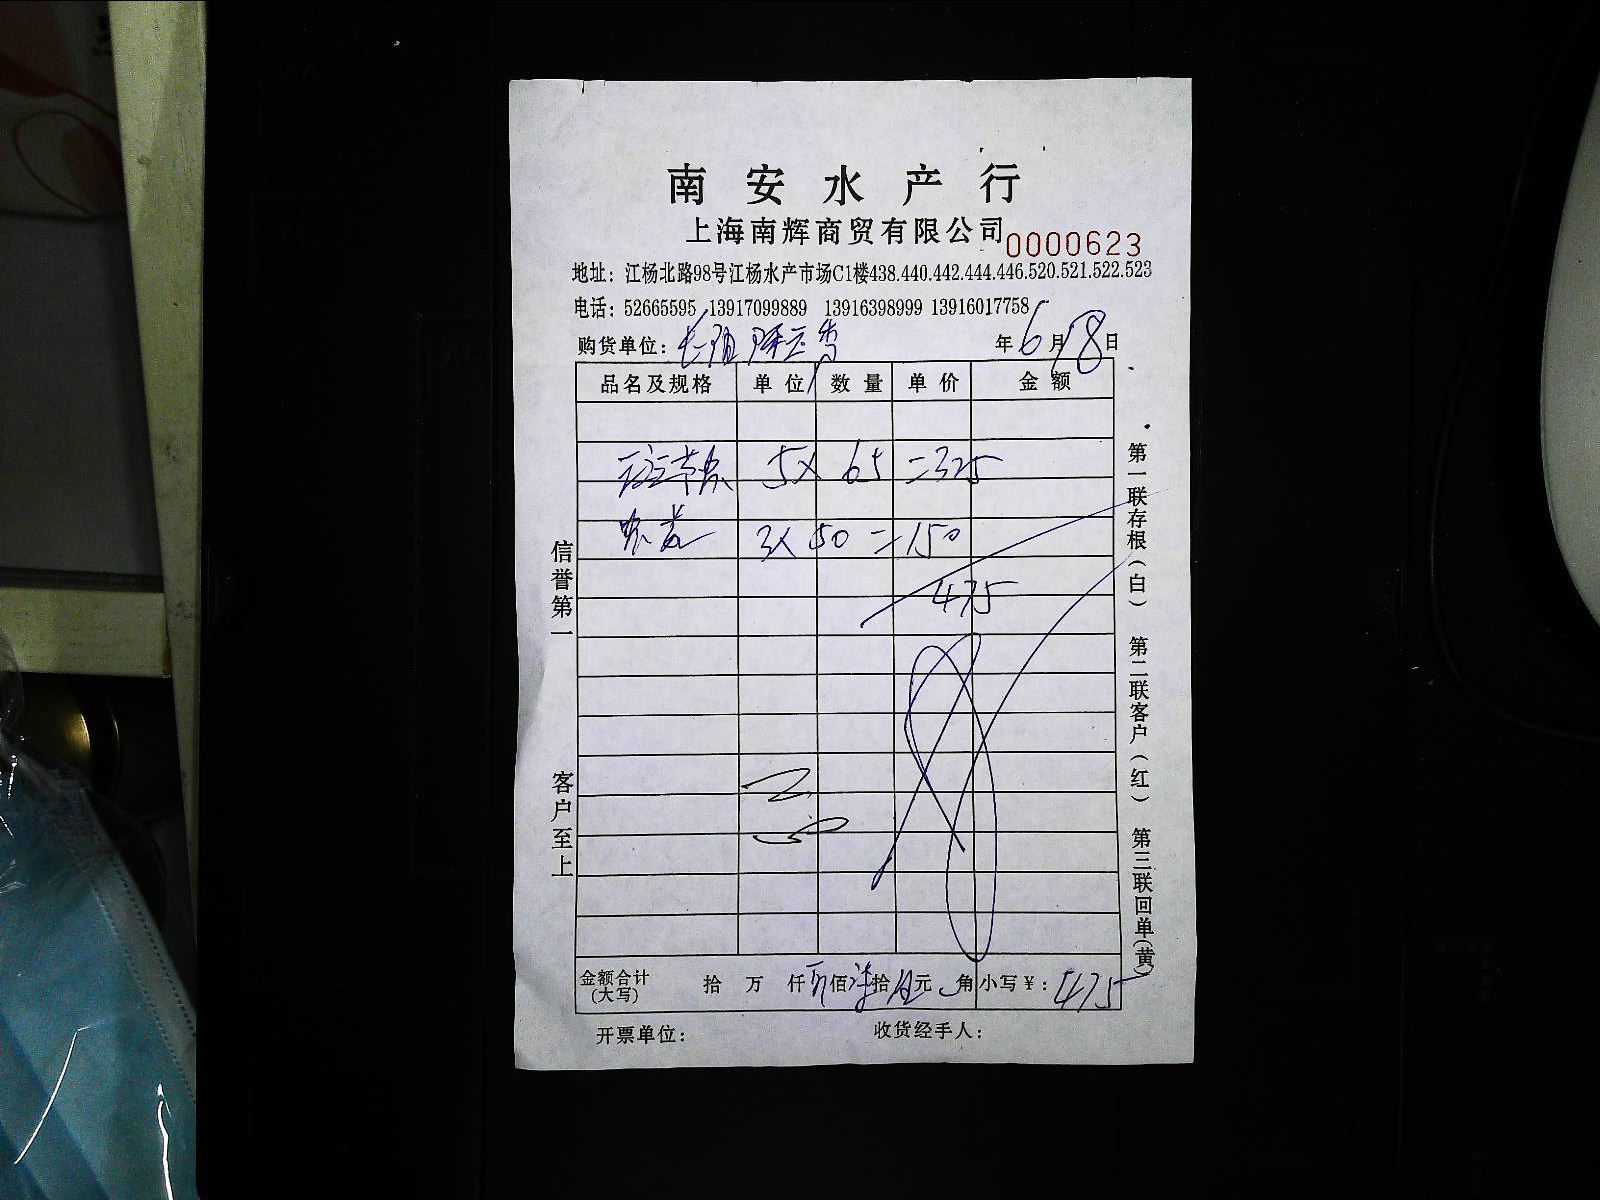 南安水产行
上海南辉商贸有限公司 0000623
地址：江杨北路98号江杨水产市场C1楼438.440.442.444.446.520.521.522.523
电话：52665595 13917099889 13916398999 13916017758
购货单位： 年6月18日
品名及规格 单位 数量 单价 金额
5× 65 =325
3× 50 =150
475
信誉第一
客户至上
第一联存根(白) 第二联客户(红) 第三联回单(黄)
金额合计(大写) 拾 万 仟 佰 拾 元 角 小写¥：475
开票单位： 收货经手人：